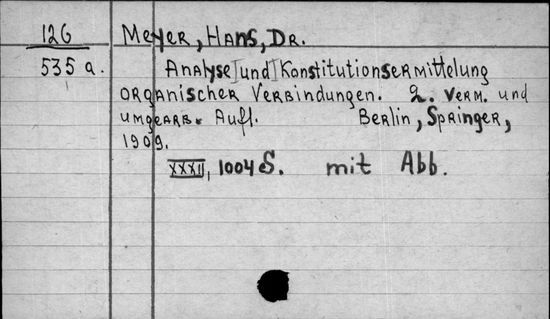 126 Meyer, Hans, Dr.
535 a. Analyse und Konstitutionsermittelung
organischer Verbindungen. 2. verm. und
umgearb. Aufl. Berlin, Springer,
1909.
XXXII, 1004 S. mit Abb.